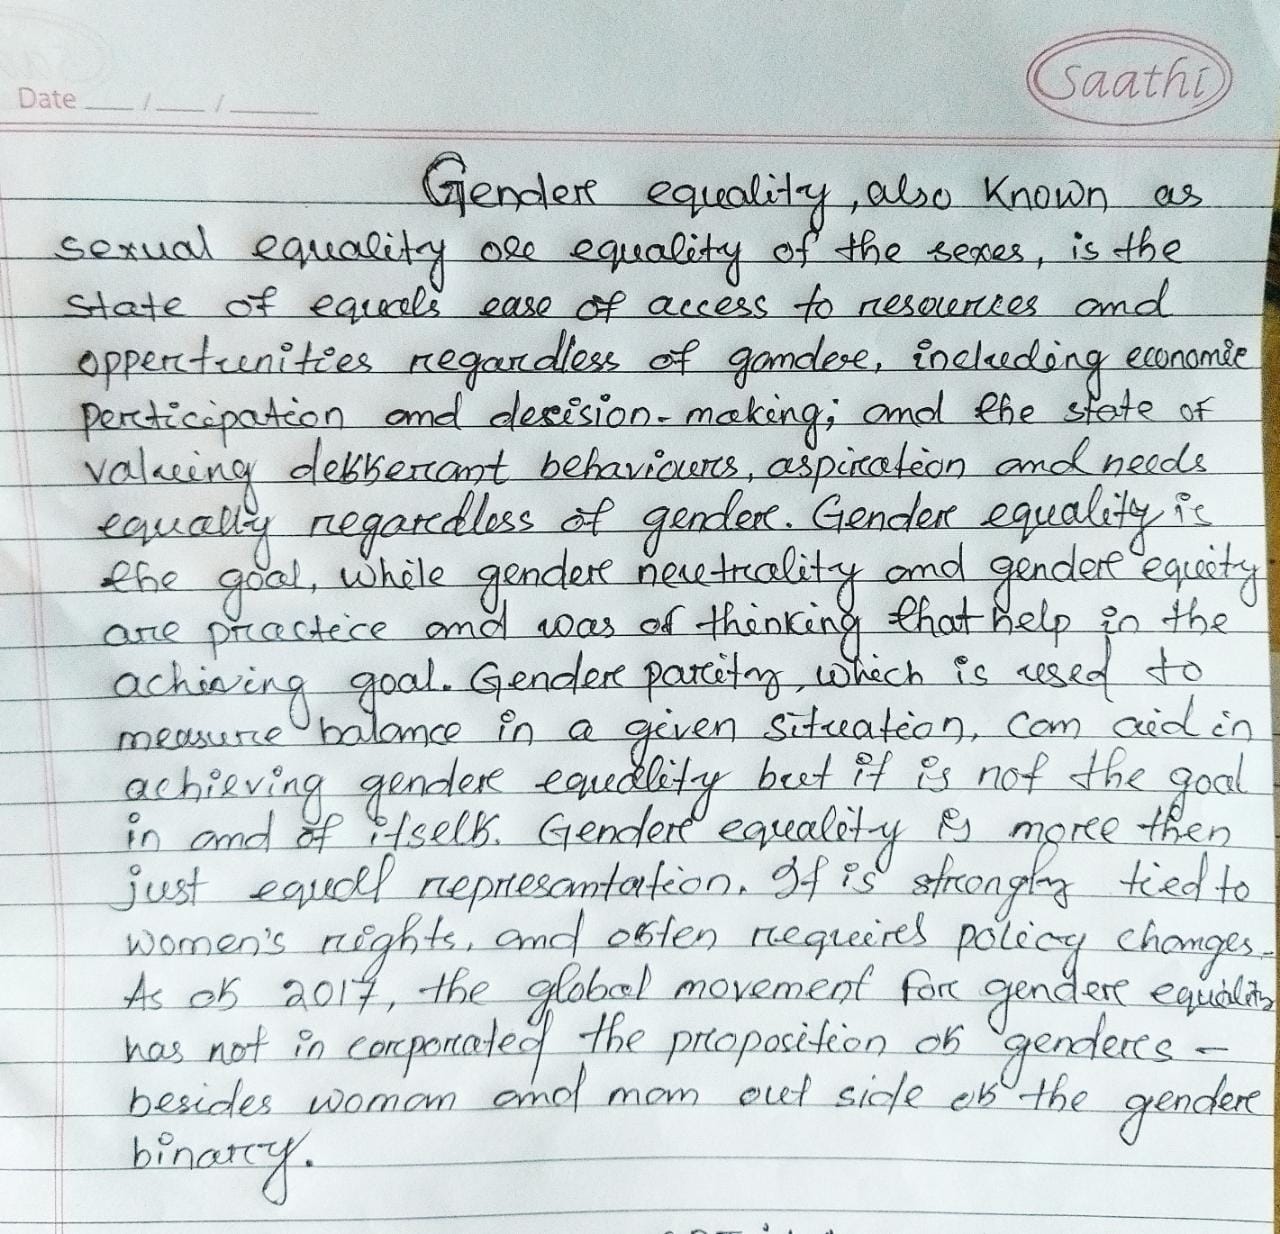 Date __/__/____
Saathi
Gender equality, also known as
sexual equality or equality of the sexes, is the
state of equals ease of access to resources and
opportunities regardless of gander, including economic
perticipation and desision-making; and the state of
valuing defferant behaviours, aspiration and needs
equally regardless of gender. Gender equality is
the goal, while gender neutrality and gender equity
are practice and was of thinking that help in the
achiving goal. Gender parity, which is used to
measure balance in a given situation, can aid in
achieving gender equality but it is not the goal
in and of itself. Gender equality is more then
just equall represantation. It is strongly tied to
women's rights, and often requires policy changes.
As of 2017, the global movement for gender equality
has not in corporated the proposition of genders -
besides woman and man out side of the gender
binary.